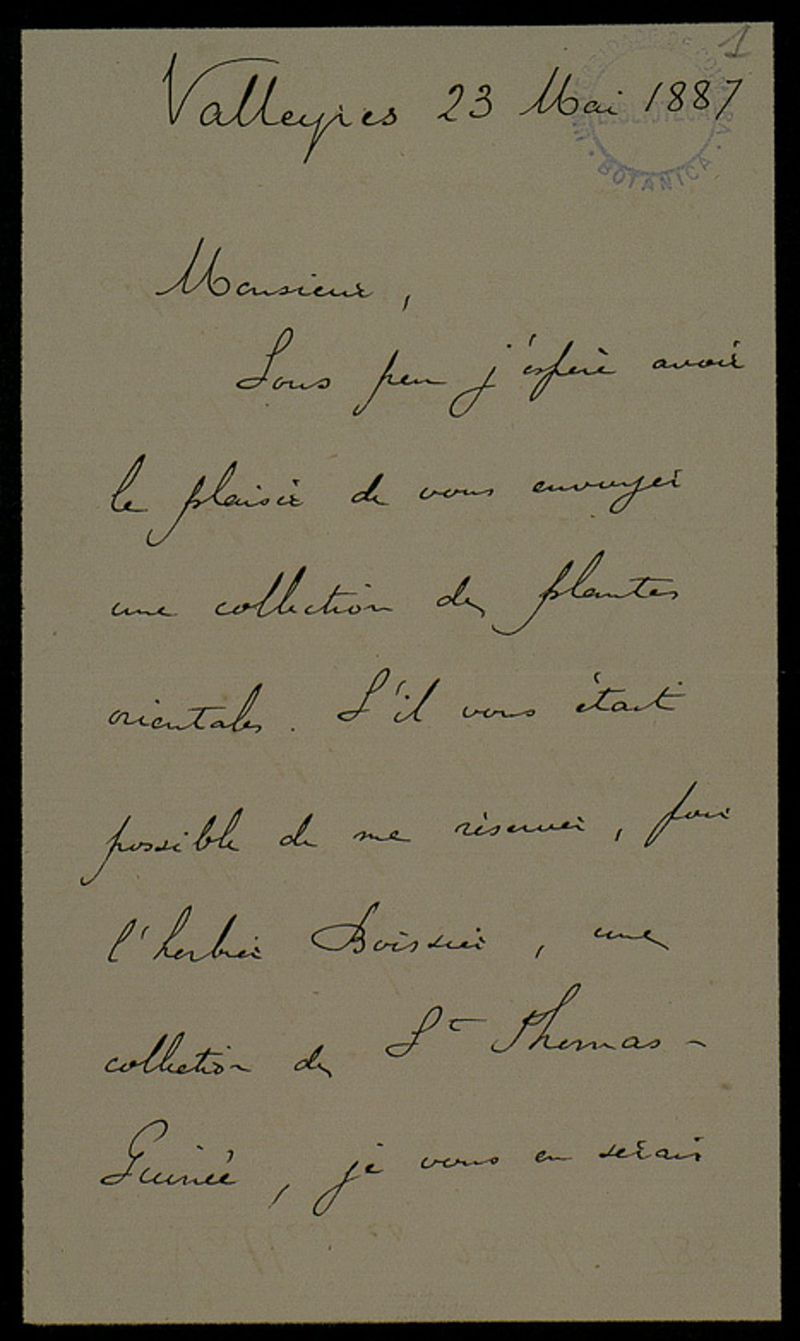 1
UNIVERSIDADE DE COIMBRA
BIBLIOTECA
BOTANICA
Valleyres 23 Mai 1887
Monsieur,
Sous peu j'espère avoir
le plaisir de vous envoyer
une collection de plantes
orientales. S'il vous était
possible de me réserver, pour
l'herbier Boissier, une
collection de St Thomas-
Guinée, je vous en serais